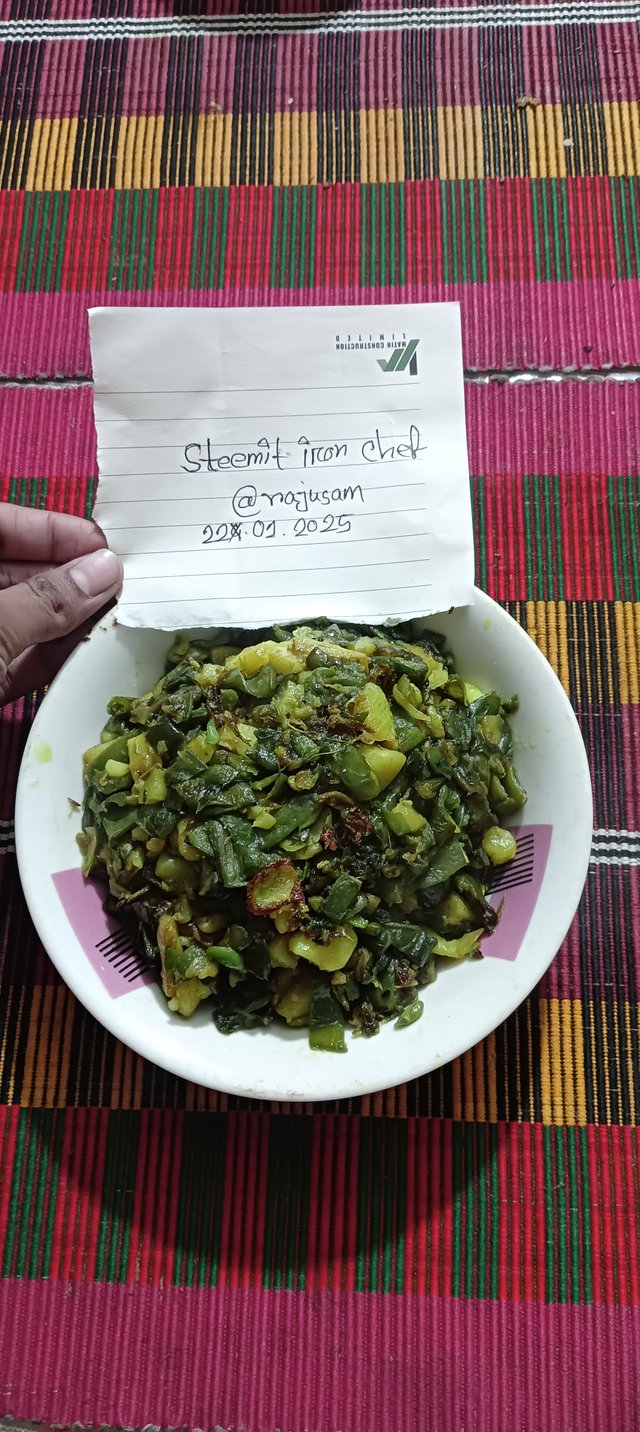 MATIN CONSTRUCTION
LIMITED
Steemit iron chef
@najusam
22.01.2025